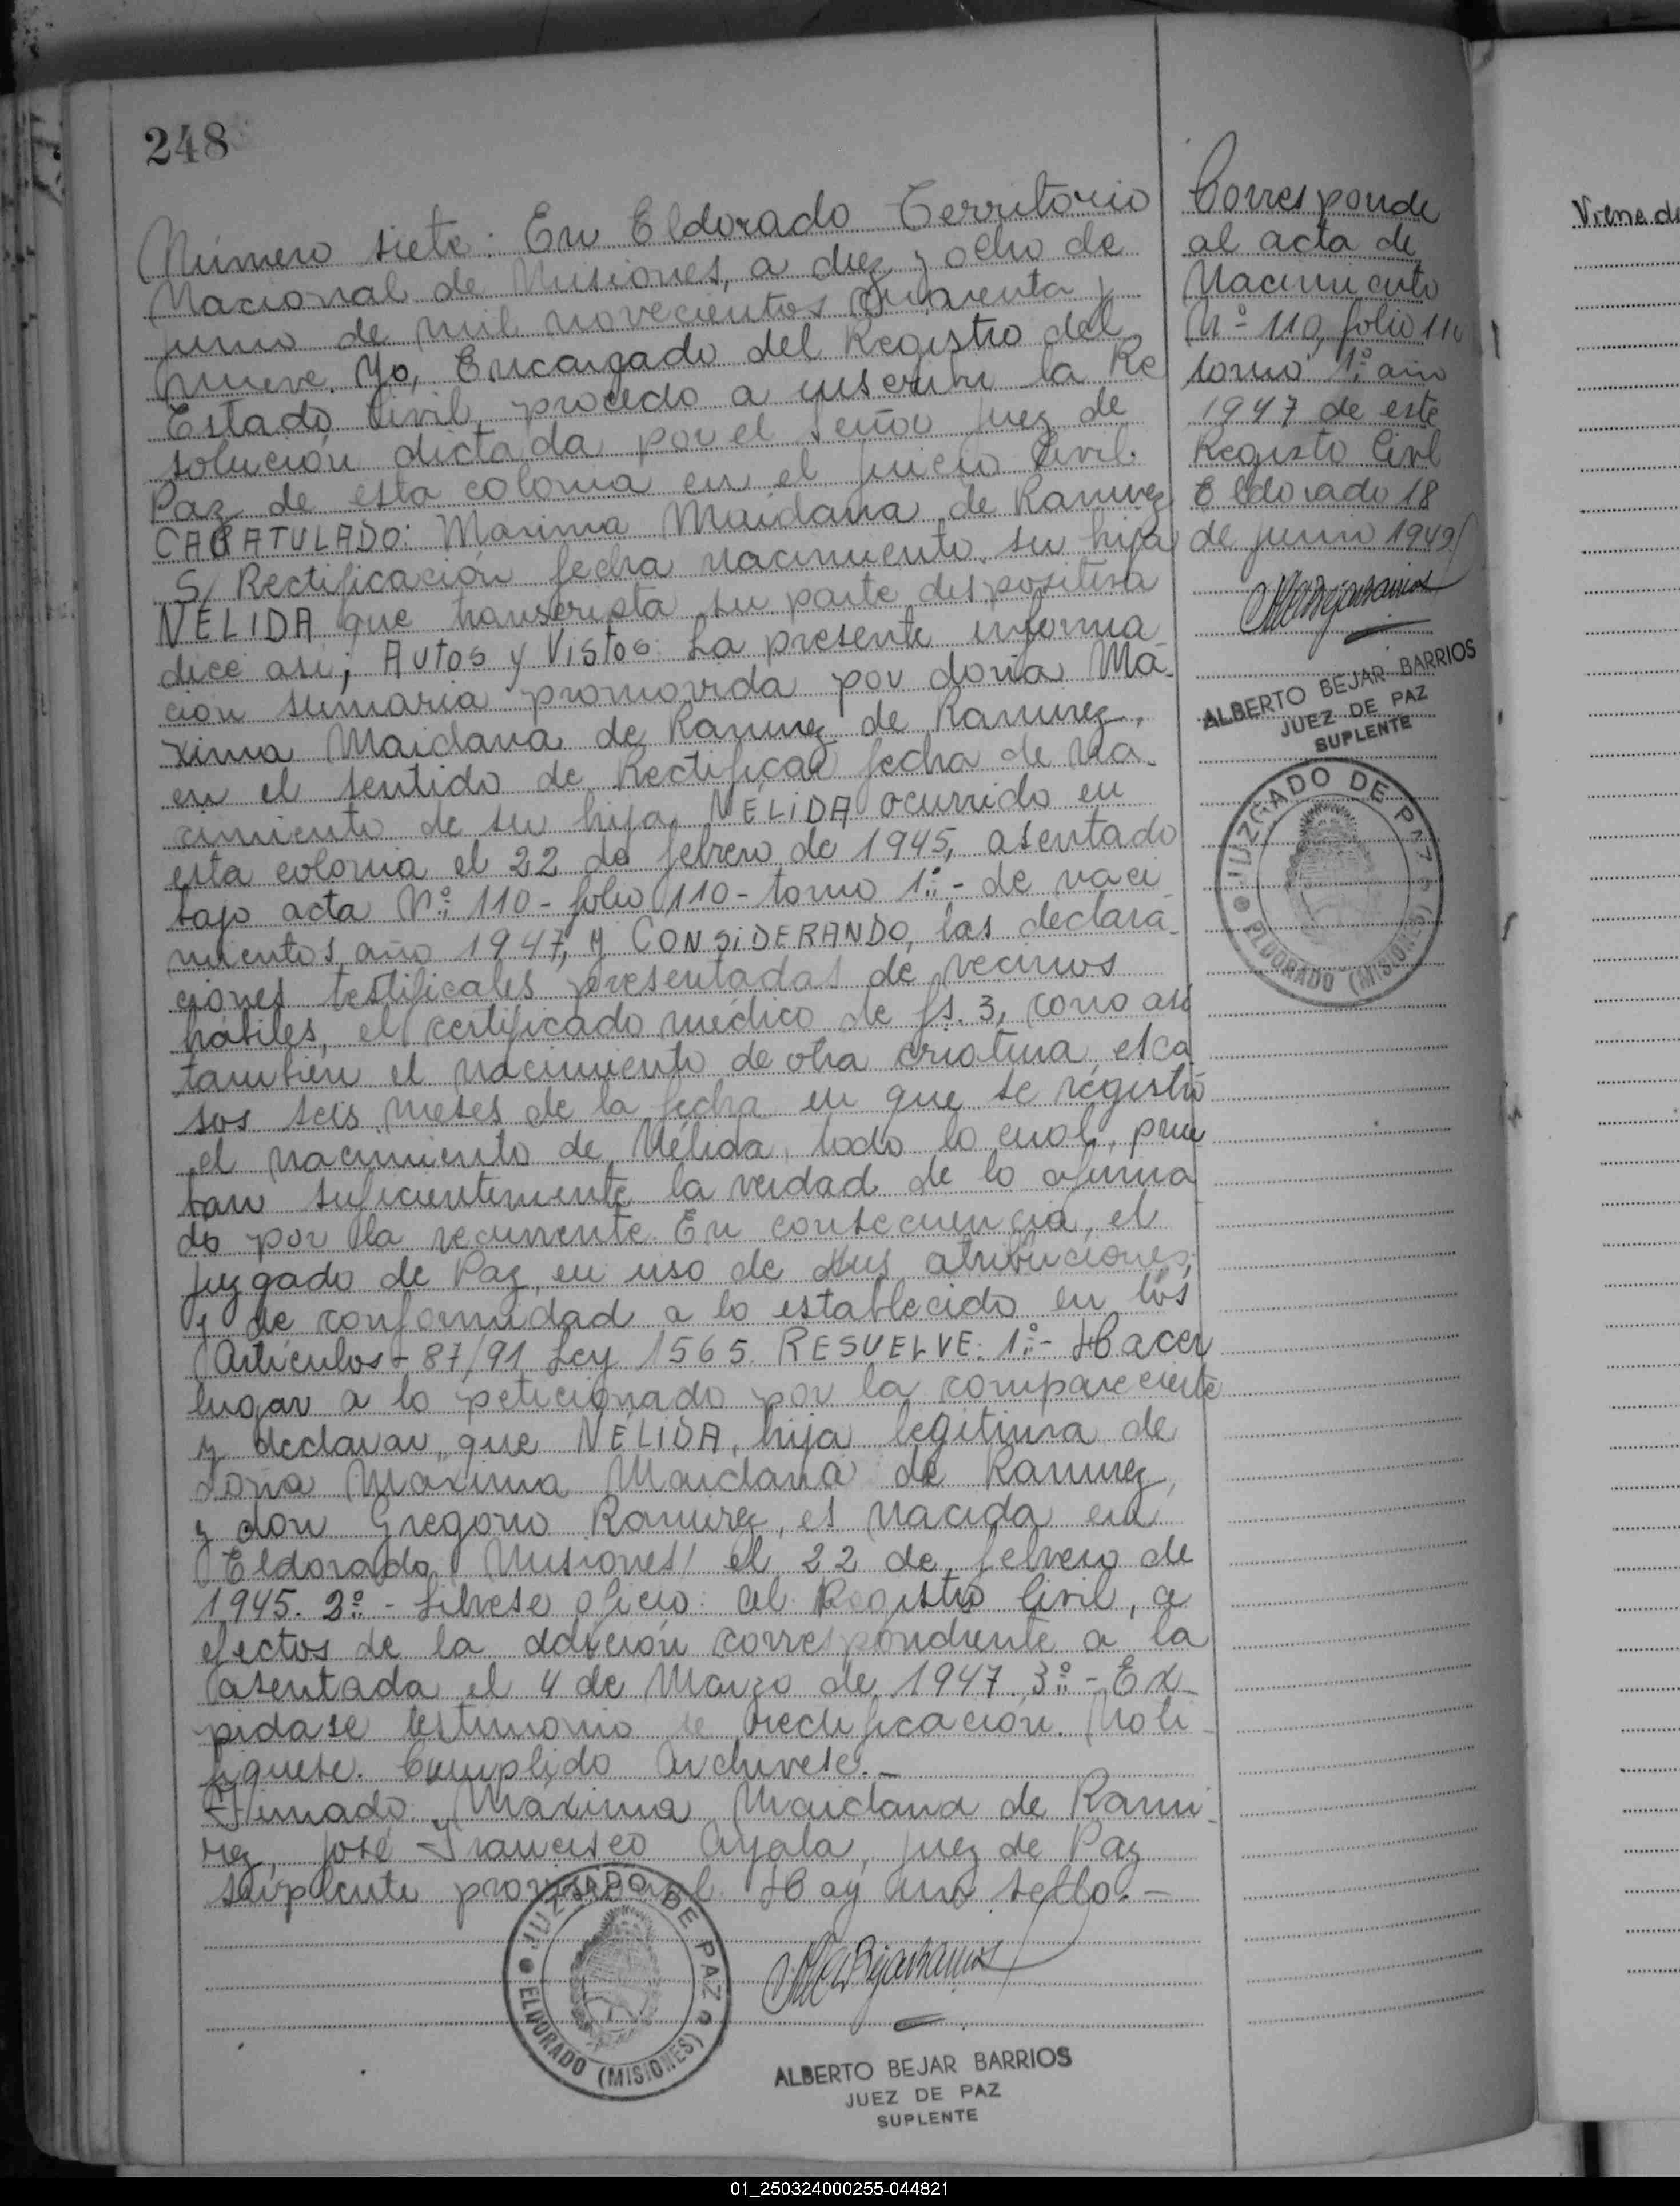 248
Número siete: En Eldorado Territorio
Nacional de Misiones, a diez y ocho de
junio de mil novecientos cuarenta y
nueve. Yo, Encargado del Registro del
Estado Civil, procedo a inscribir la Re
solución dictada por el Señor Juez de
Paz de esta colonia en el juicio Civil.
CARATULADO: Maxima Maidana de Ramirez
S/ Rectificación fecha nacimiento su hija
NELIDA que transcripta su parte dispositiva
dice así; Autos y Vistos: La presente informa
cion sumaria promovida por doña Má-
xima Maidana de Ramirez de Ramirez,
en el sentido de Rectificar fecha de na-
cimiento de su hija NÉLIDA ocurrido en
esta colonia el 22 de febrero de 1945, asentado
bajo acta Nº 110 - folio 110 - tomo 1º - de naci
mientos año 1947, y CONSIDERANDO, las declara-
ciones testificales presentadas de vecinos
habiles, el certificado médico de fs. 3, como así
tambien el nacimiento de otra criatura esca
sos seis meses de la fecha en que se registró
el nacimiento de Nélida, todo lo cual, prue
ban suficientemente la verdad de lo afirma
do por la recurrente. En consecuencia, el
Juzgado de Paz, en uso de sus atribuciones,
y de conformidad a lo establecido en los
Articulos - 87/91 Ley 1565. RESUELVE: 1º - Hacer
lugar a lo peticionado por la compareciente
y declarar, que NÉLIDA, hija legitima de
doña Maxima Maidana de Ramirez,
y don Gregorio Ramirez, es nacida en
Eldorado Misiones/ el 22 de febrero de
1945. 2º - Librese oficio: al Registro Civil, a
efectos de la adición correspondiente a la
asentada el 4 de Marzo de 1947. 3º - Ex-
pidase testimonio de rectificacion. Noti-
fiquese. Cumplido Archivese. -
Firmado: Máxima Maidana de Rami-
rez, José Francisco Ayala, Juez de Paz
suplente provisional. Hay un sello. -
JUZGADO DE PAZ
ELDORADO (MISIONES)
ALBERTO BEJAR BARRIOS
JUEZ DE PAZ
SUPLENTE
Corresponde
al acta de
Nacimiento
Nº 110, folio 110
tomo 1º año
1947 de este
Registo Civl
Eldorado 18
de junio 1949/
ALBERTO BEJAR BARRIOS
JUEZ DE PAZ
SUPLENTE
JUZGADO DE PAZ
ELDORADO (MISIONES)
Viene de
01_250324000255-044821